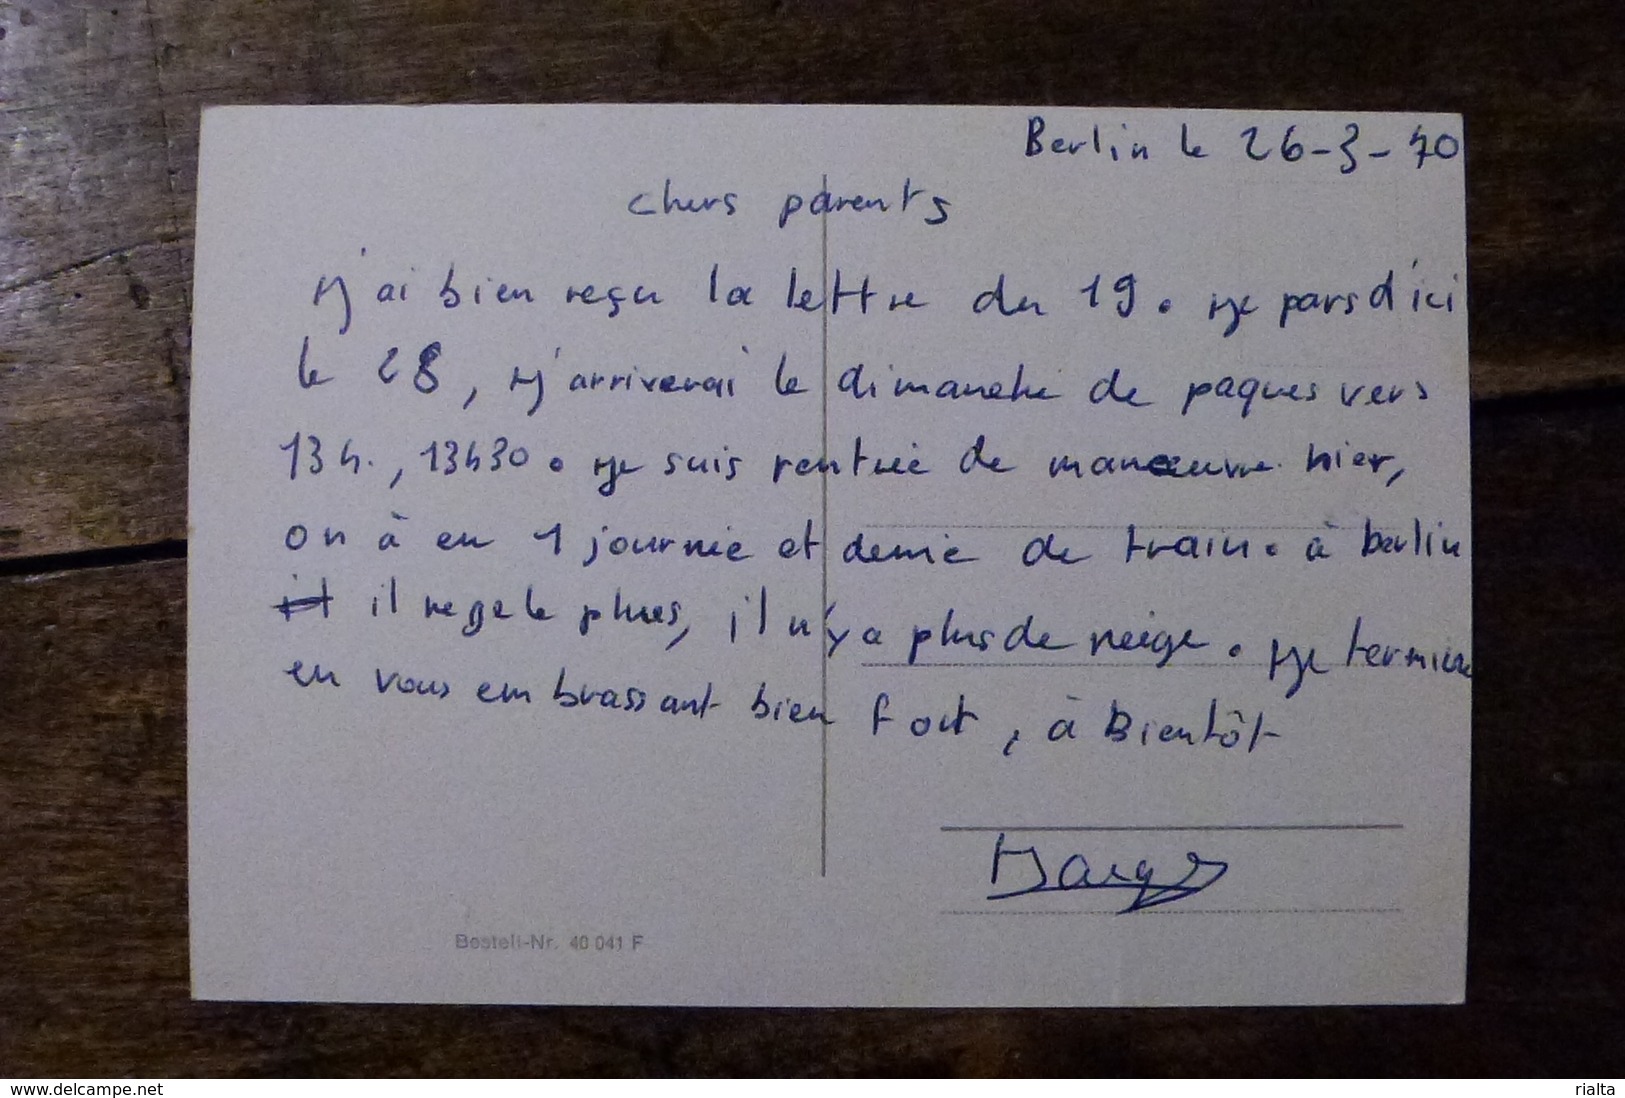 Berlin le 26-3-70
chers parents
j'ai bien reçu la lettre du 19. je pars d'ici
le 28, j'arriverai le dimanche de paques vers
13h., 13h30. je suis rentrée de manœuvre hier,
on à eu 1 journée et demie de train. à berlin
il ne gele plus, il n'y a plus de neige. je termine
en vous embrassant bien fort, à Bientôt
Bestell-Nr. 40 041 F
www.delcampe.net
rialta